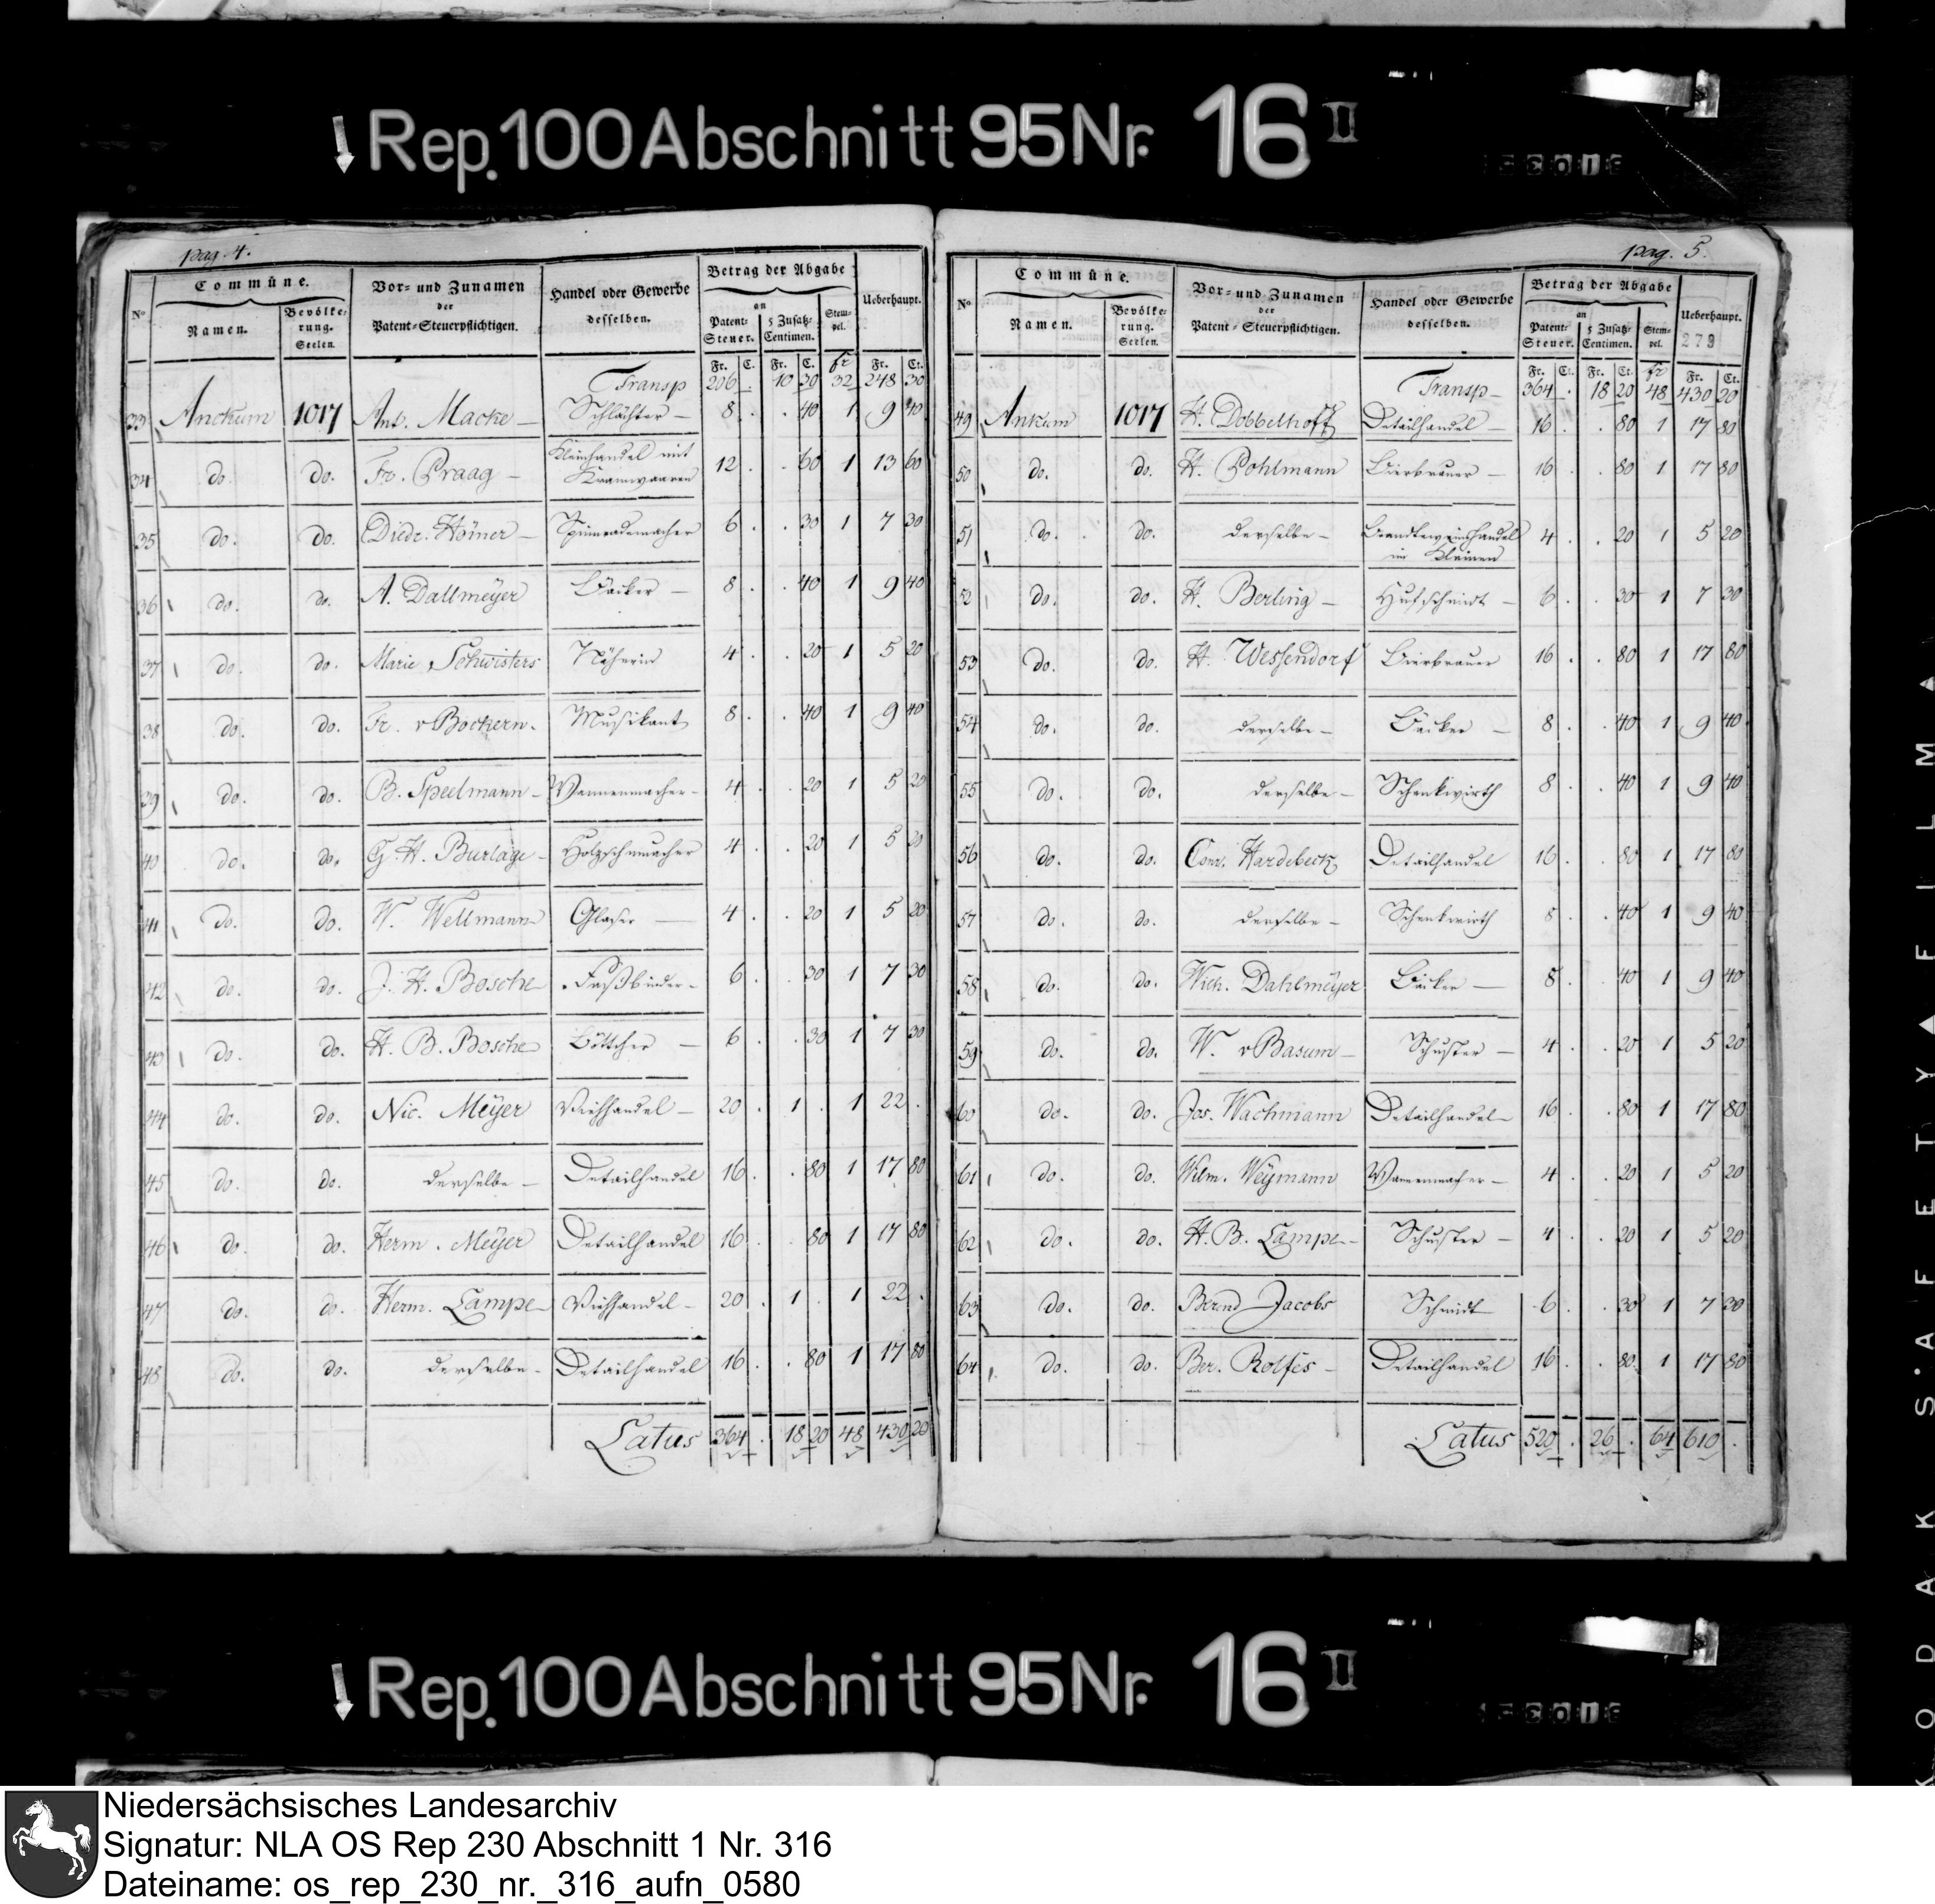 Rep. 100 Abschnitt 95 Nr. 16 II
pag. 4.
No
Commüne.
Namen.
Bevölke-
rung.
Seelen.
Vor- und Zunamen
der
Patent-Steuerpflichtigen.
Handel oder Gewerbe
desselben.
Betrag der Abgabe
an
Patent-
Steuer.
5 Zusatz-
Centimen.
Stem-
pel.
Ueberhaupt.
Fr. C. Fr. C. fr Fr. Ct.
Transp 206 . 10 30 32 248 30
33 Anckum 1017 Ant. Macke Schlächter 8 . . 40 1 9 40
34 do. do. Fr. Praag Kleinhandel mit
Kramwaaren 12 . . 60 1 13 60
35 do. do. Diedr. Hömer Spinnrademacher 6 . . 30 1 7 30
36 do. do. A. Dallmeÿer Bäcker 8 . . 40 1 9 40
37 do. do. Marie Schwisters Näherin 4 . . 20 1 5 20
38 do. do. Fr. v Bockern. Musikant 8 . . 40 1 9 40
39 do. do. B. Speelmann Wannenmacher 4 . . 20 1 5 20
40 do. do. G. H. Burlage Holzschumacher 4 . . 20 1 5 20
41 do. do. W. Wellmann Glaser 4 . . 20 1 5 20
42 do. do. J. H. Bosche Faßbinder 6 . . 30 1 7 30
43 do. do. H. B. Bosche Böttcher 6 . . 30 1 7 30
44 do. do. Nic. Meÿer Viehhandel 20 . 1 . 1 22 .
45 do. do. derselbe Detailhandel 16 . . 80 1 17 80
46 do. do. Herm. Meÿer Detailhandel 16 . . 80 1 17 80
47 do. do. Herm. Lampe Viehhandel 20 . 1 . 1 22 .
48 do. do. derselbe Detailhandel 16 . . 80 1 17 80
Latus 364 . 18 20 48 430 20
pag. 5.
No
Commüne.
Namen.
Bevölke-
rung.
Seelen.
Vor- und Zunamen
der
Patent-Steuerpflichtigen.
Handel oder Gewerbe
desselben.
Betrag der Abgabe
an
Patent-
Steuer.
5 Zusatz-
Centimen.
Stem-
pel.
Ueberhaupt.
279
Fr. Ct. Fr. Ct. fr Fr. Ct.
Transp 364 . 18 20 48 430 20
49 Ankum 1017 H. Dobbelhoff Detailhandel 16 . . 80 1 17 80
50 do. do. H. Pohlmann Bierbrauer 16 . . 80 1 17 80
51 do. do. derselbe Brandteweinhandel
im Kleinen 4 . . 20 1 5 20
52 do. do. H. Berling Hufschmidt 6 . . 30 1 7 30
53 do. do. H. Wessendorf Bierbrauer 16 . . 80 1 17 80
54 do. do. derselbe Bäcker 8 . . 40 1 9 40
55 do. do. derselbe Schenkwirth 8 . . 40 1 9 40
56 do. do. Conr. Hardebeck Detailhandel 16 . . 80 1 17 80
57 do. do. derselbe Schenkwirth 8 . . 40 1 9 40
58 do. do. Wich. Dahlmeÿer Bäcker 8 . . 40 1 9 40
59 do. do. W. v Basum Schuster 4 . . 20 1 5 20
60 do. do. Jos. Wachmann Detailhandel 16 . . 80 1 17 80
61 do. do. Wilm. Weÿmann Wannenmacher 4 . . 20 1 5 20
62 do. do. H. B. Lampe Schuster 4 . . 20 1 5 20
63 do. do. Bernd Jacobs Schmidt 6 . . 30 1 7 30
64 do. do. Ber. Rolfes Detailhandel 16 . . 80 1 17 80
Latus 520 . 26 . 64 610 .
KODAK SAFETY FILM
Rep. 100 Abschnitt 95 Nr. 16 II
Niedersächsisches Landesarchiv
Signatur: NLA OS Rep 230 Abschnitt 1 Nr. 316
Dateiname: os_rep_230_nr._316_aufn_0580